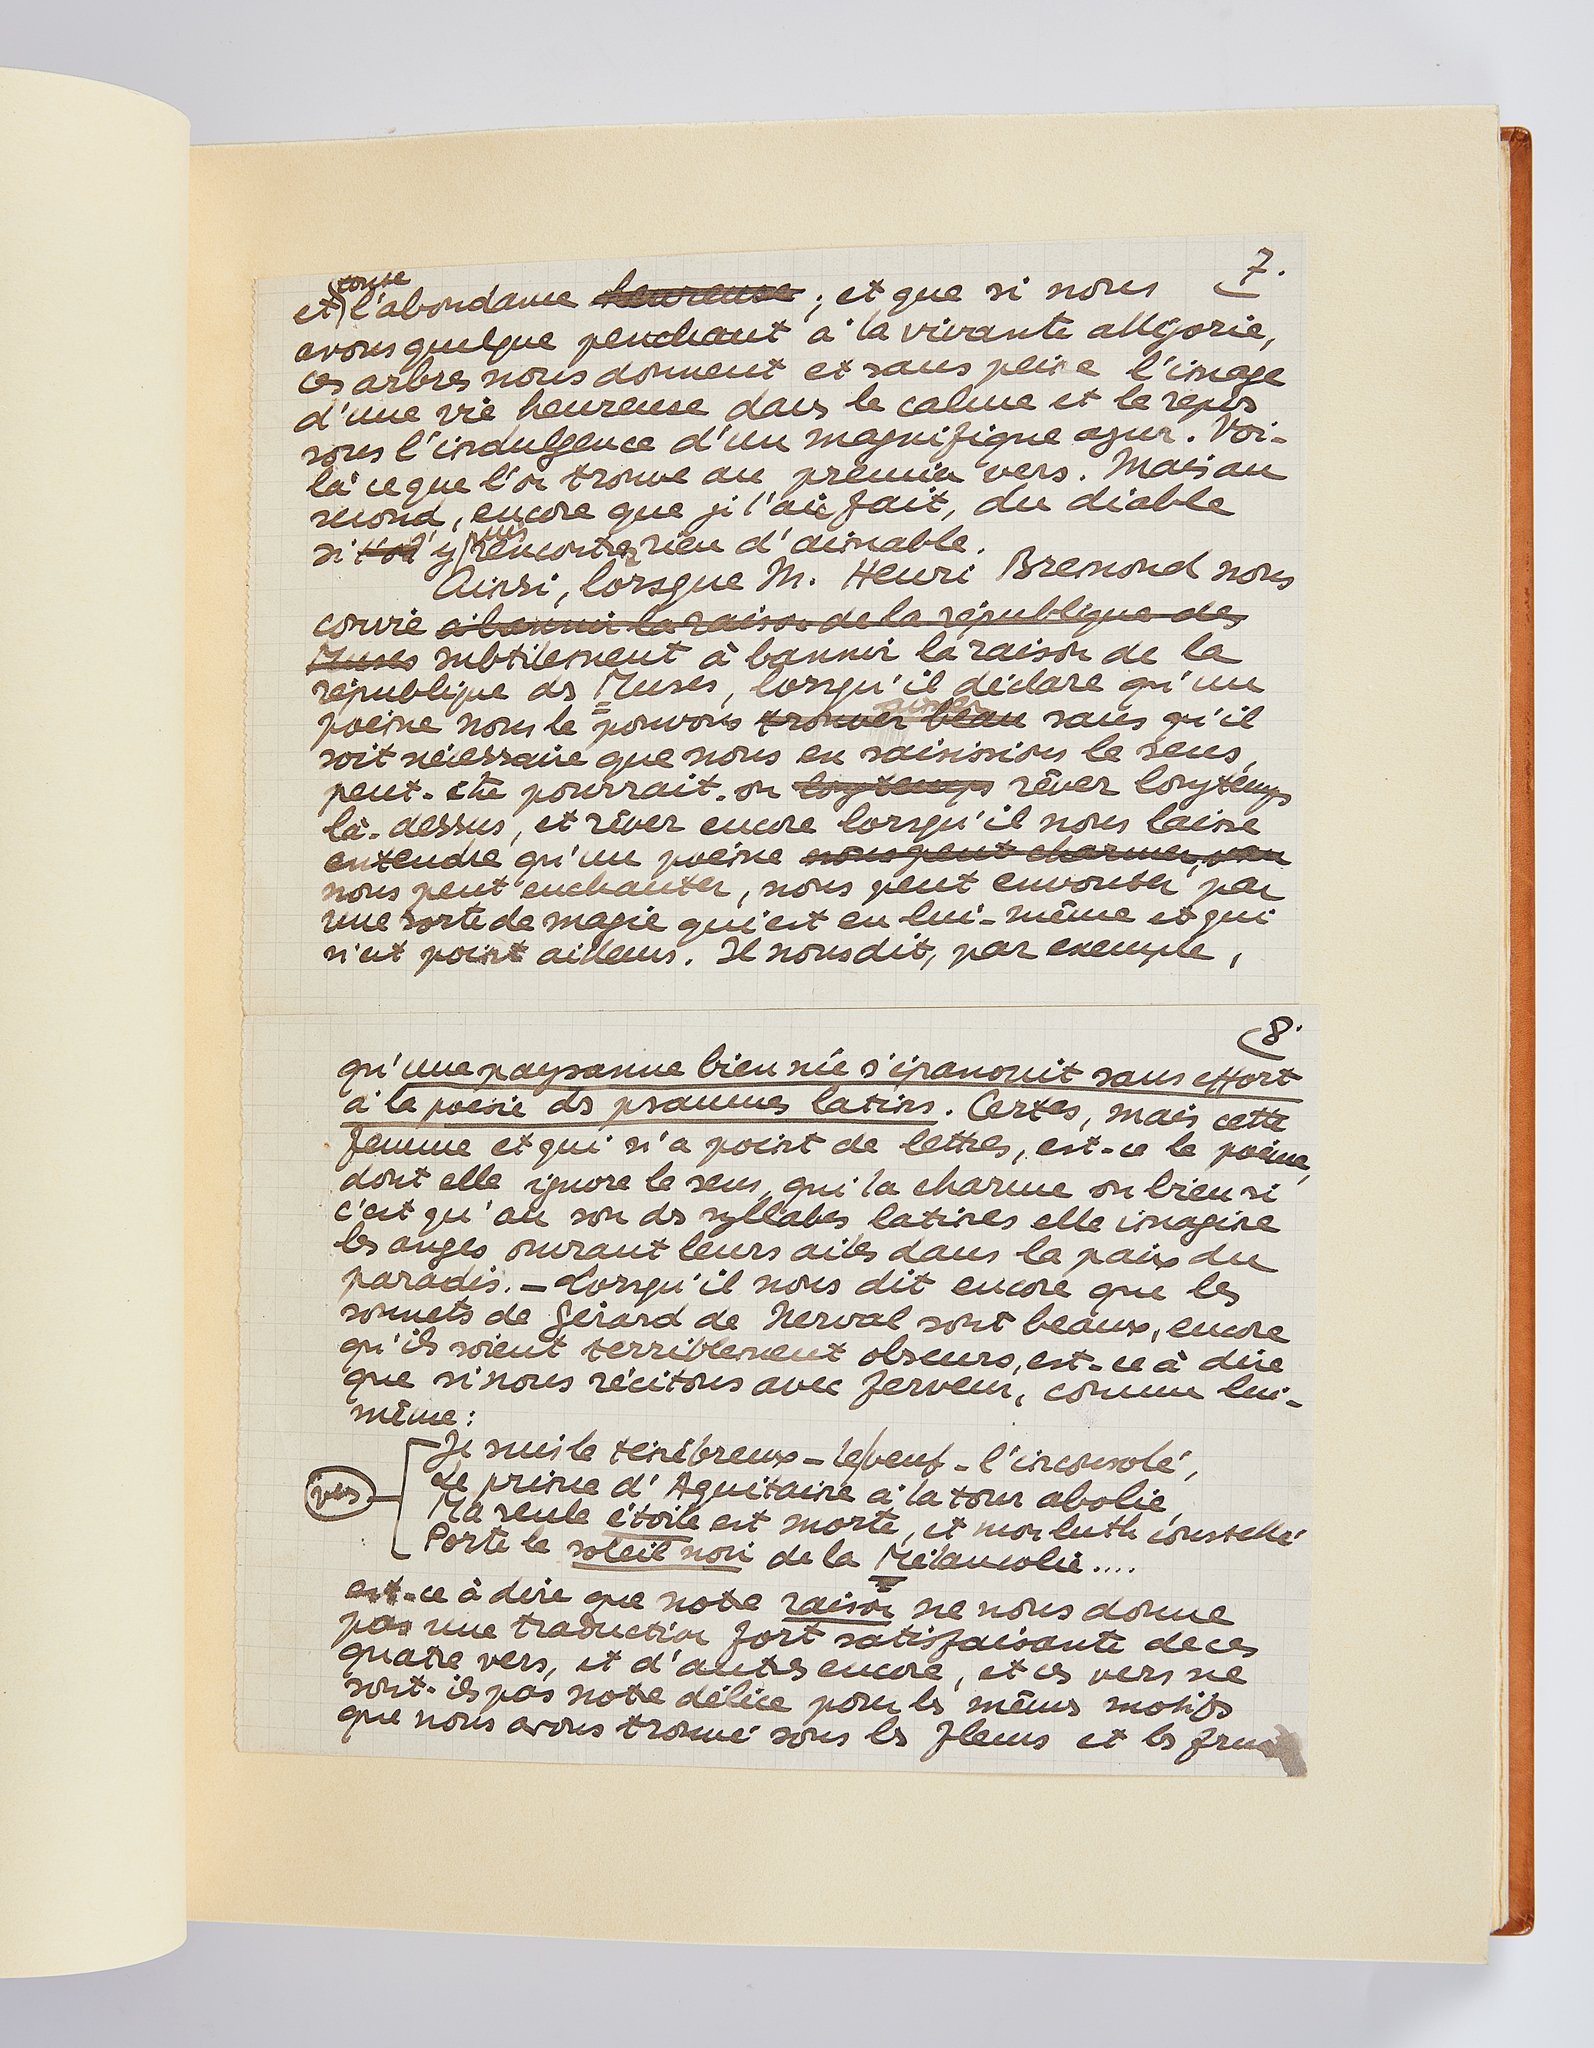 7.
et toute l'abondance heureuse ; et que si nous
avons quelque penchant à la vivante allégorie,
ces arbres nous donnent et sans peine l'image
d'une vie heureuse dans le calme et le repos
sous l'indulgence d'un magnifique azur. Voi-
là ce que l'on trouve au premier vers. Mais au
second, encore que je l'aie fait, du diable
si l'on j'y puis rencontrer rien d'aimable.
Ainsi, lorsque M. Henri Bremond nous
convie à bannir la raison de la république des
Muses subtilement à bannir la raison de la
république des Muses, lorsqu'il déclare qu'un
poème nous le pouvons trouver beau aimer sans qu'il
soit nécessaire que nous en saisissions le sens,
peut-être pourrait-on longtemps rêver longtemps
là-dessus, et rêver encore lorsqu'il nous laisse
entendre qu'un poème nous peut charmer,
nous peut enchanter, nous peut envoûter par
une sorte de magie qui est en lui-même et qui
n'est point ailleurs. Il nous dit, par exemple,
8.
qu'une paysanne bien née s'épanouit sans effort
à la poésie des psaumes latins. Certes, mais cette
femme et qui n'a point de lettres, est-ce le poème,
dont elle ignore le sens, qui la charme ou bien si
c'est qu'au son des syllabes latines elle imagine
les anges ouvrant leurs ailes dans la paix du
paradis. – Lorsqu'il nous dit encore que les
sonnets de Gérard de Nerval sont beaux, encore
qu'ils soient terriblement obscurs, est-ce à dire
que si nous récitons avec ferveur, comme lui-
même :
Je suis le ténébreux – le veuf – l'inconsolé,
vers
Le prince d'Aquitaine à la tour abolie,
Ma seule étoile est morte, et mon luth constellé
Porte le soleil noir de la Mélancolie....
est-ce à dire que notre raison ne nous donne
pas une traduction fort satisfaisante de ces
quatre vers, et d'autres encore, et ces vers ne
sont-ils pas notre délice pour les mêmes motifs
que nous avons trouvé sous les fleurs et les